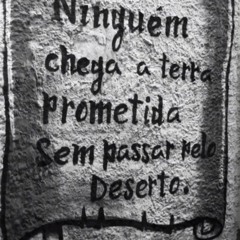 Ninguém
chega a terra
prometida
Sem passar pelo
Deserto.